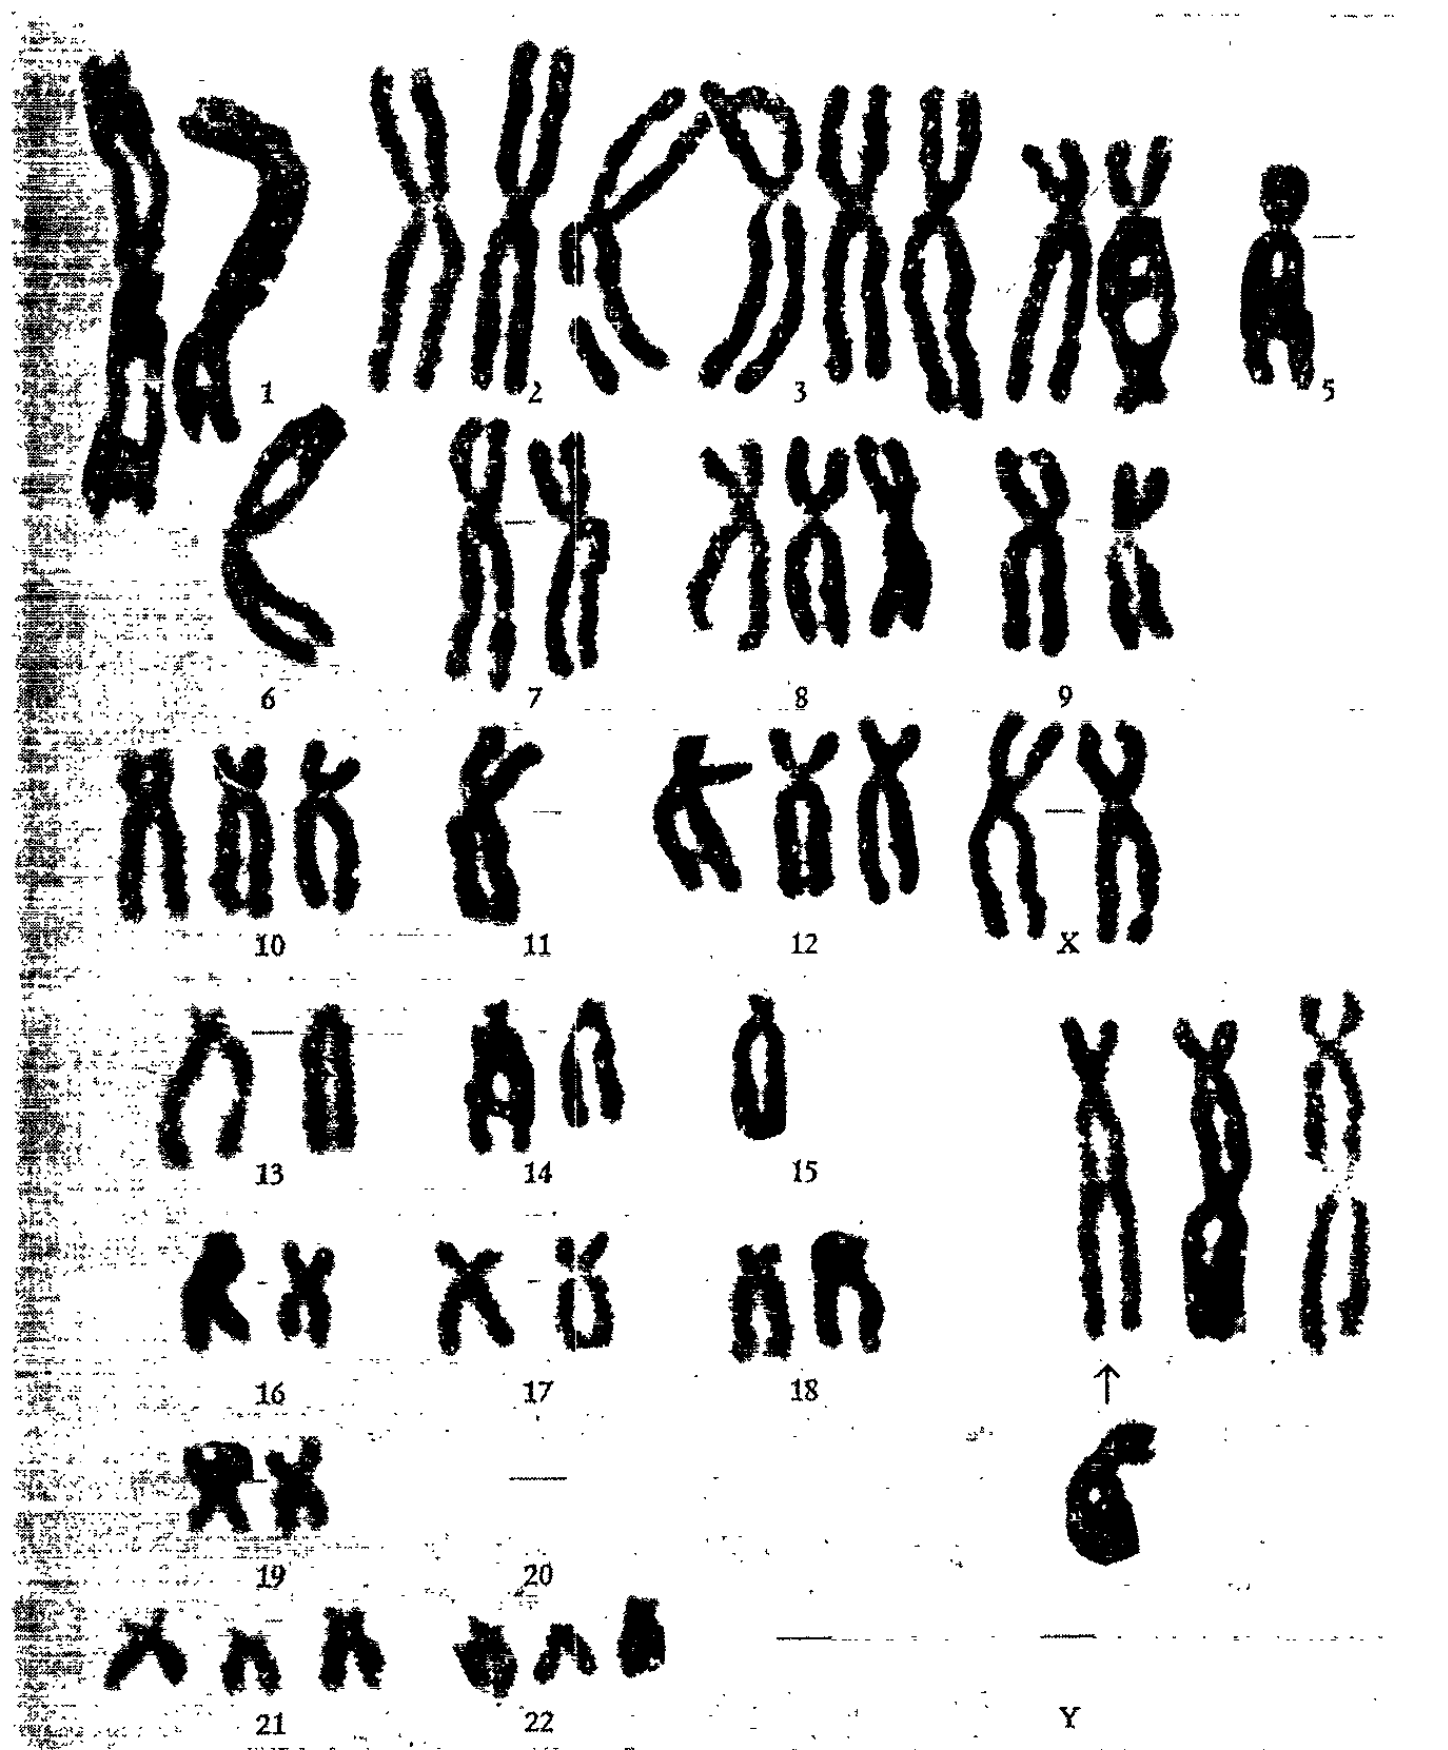 1 2 3 5
6 7 8 9
10 11 12 X
13 14 15
16 17 18
↑
19 20
21 22 Y